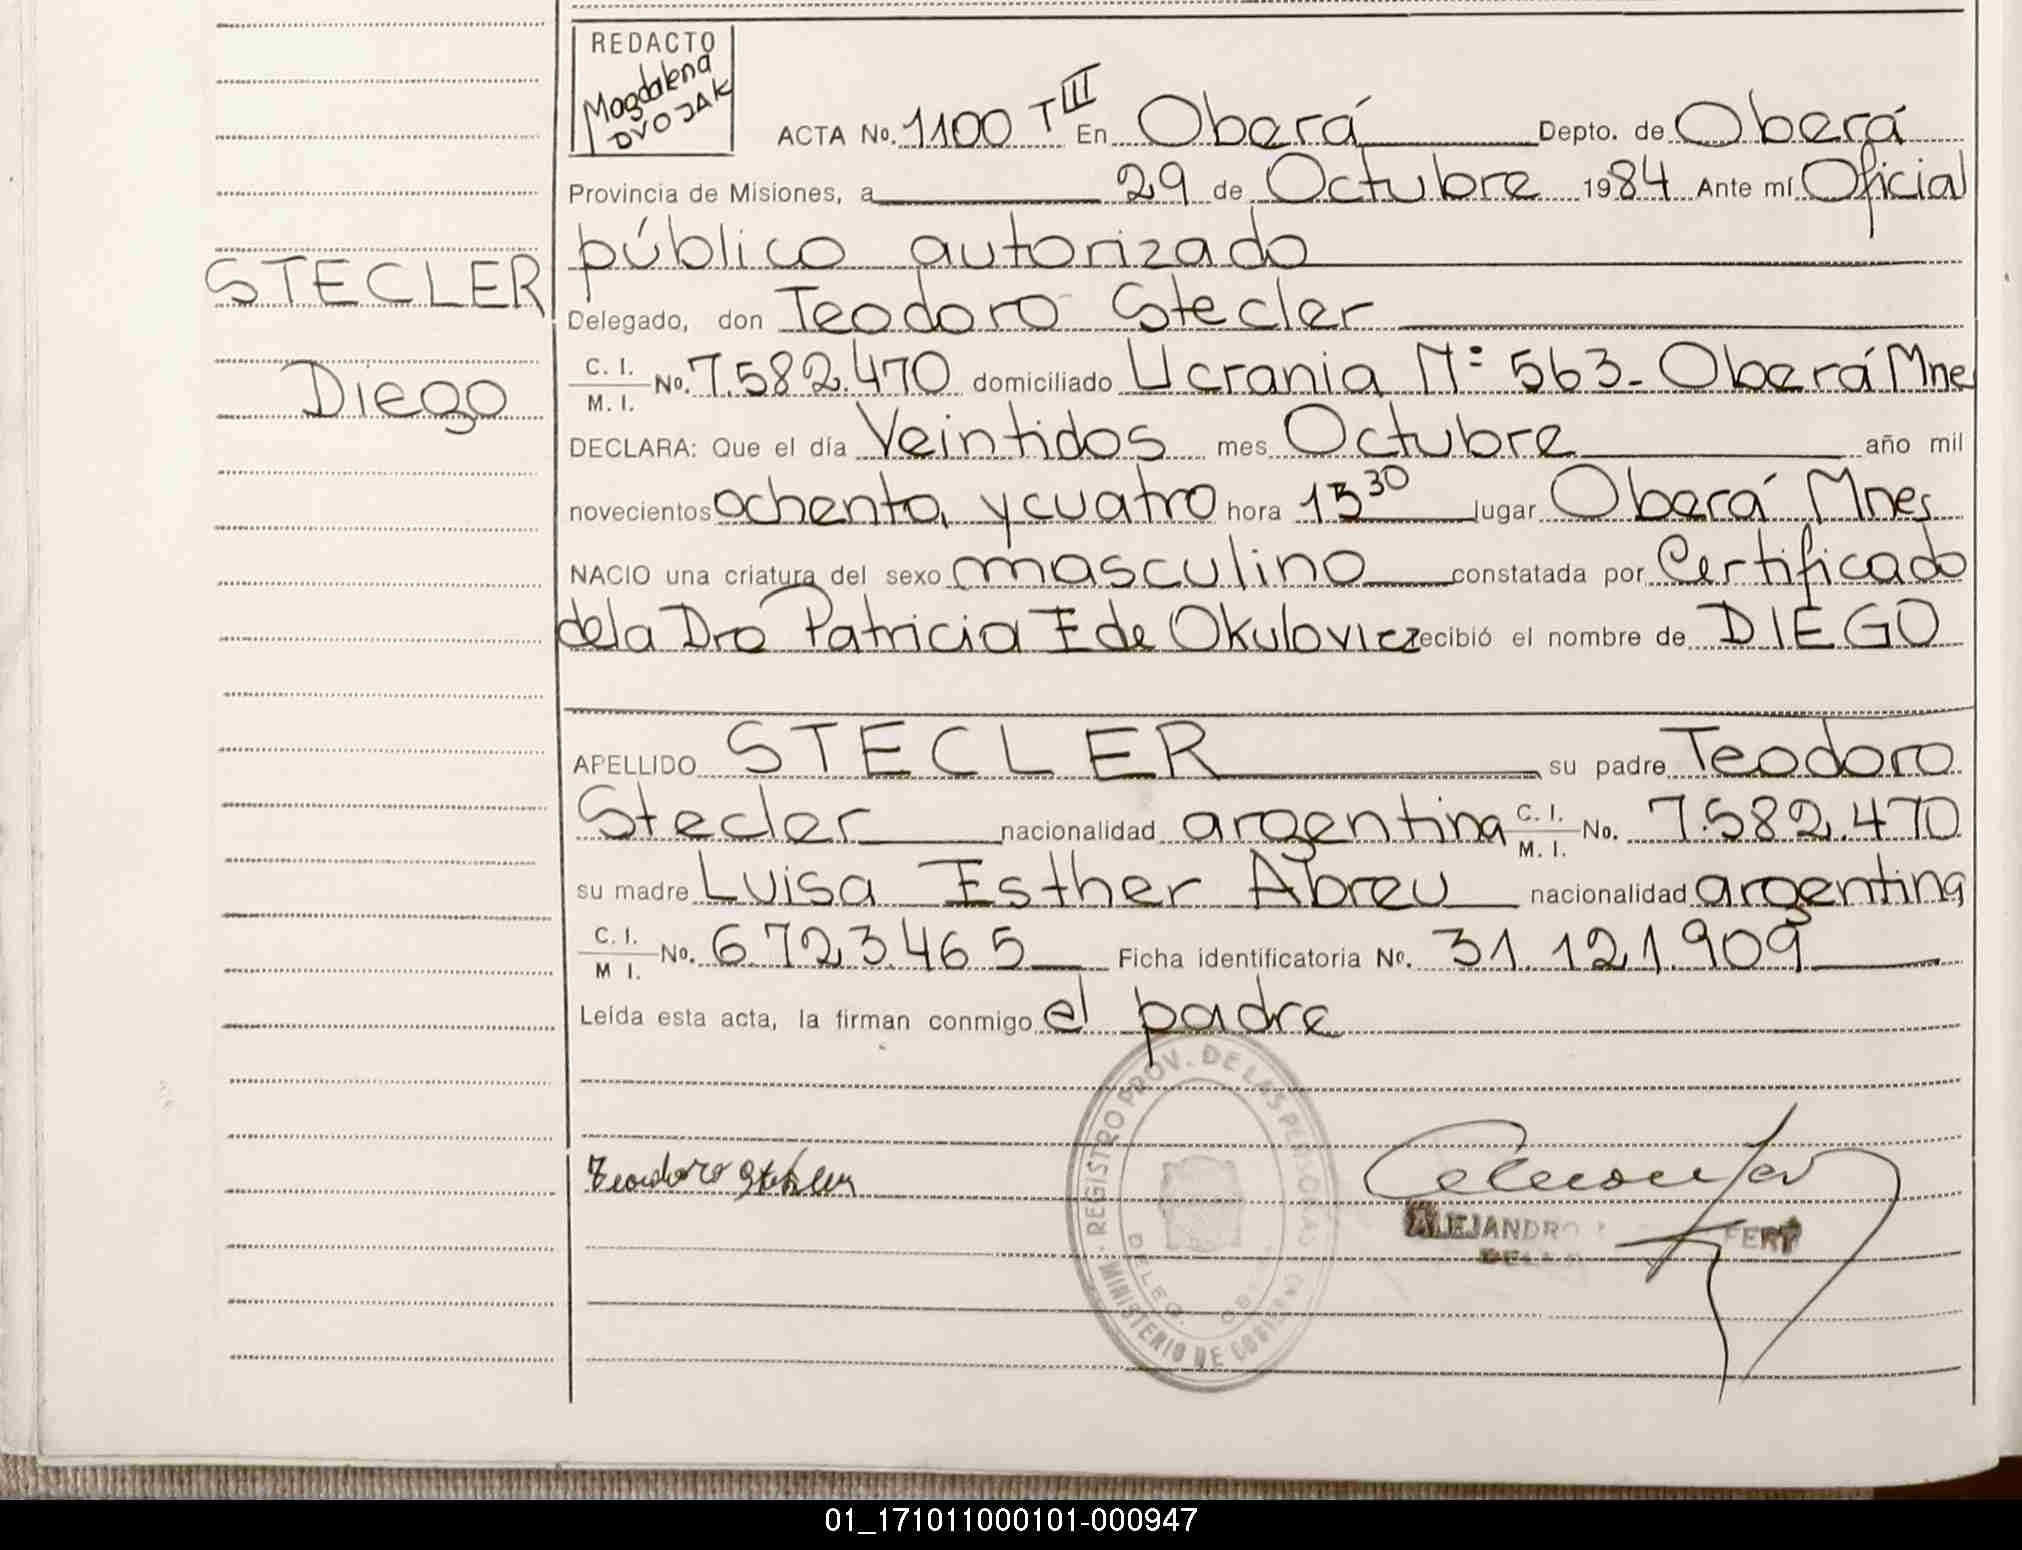 REDACTO
Magdalena
DVOJAK
ACTA No. 1100 T III En Oberá Depto. de Oberá
Provincia de Misiones, a 29 de Octubre 1984 Ante mí Oficial
público autorizado
STECLER
Delegado, don Teodoro Stecler
C. I.
M. I. No. 7.582.470 domiciliado Ucrania Nº 563 - Oberá Mnes
Diego
DECLARA: Que el día Veintidos mes Octubre año mil
novecientos ochenta y cuatro hora 13 30 lugar Oberá Mnes
NACIO una criatura del sexo masculino constatada por Certificado
de la Dra Patricia F de Okulovicz recibió el nombre de DIEGO
APELLIDO STECLER su padre Teodoro
Stecler nacionalidad argentina C. I. M. I. No. 7.582.470
su madre Luisa Esther Abreu nacionalidad argentina
C. I.
M I. No. 6.723.465 Ficha identificatoria No. 31.121.909
Leída esta acta, la firman conmigo el padre
REGISTRO PROV. DE LAS PERSONAS
DELEG.
MINISTERIO DE GOBIERNO
Teodoro Stekler
ALEJANDRO
01_171011000101-000947